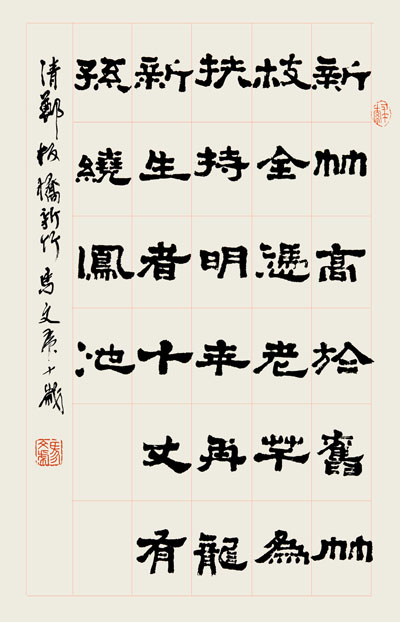 新竹高於舊竹
枝全憑老竿為
扶持明年再龍
新生者十丈有
孫繞鳳池
清鄭板橋新竹 馬文 十歲